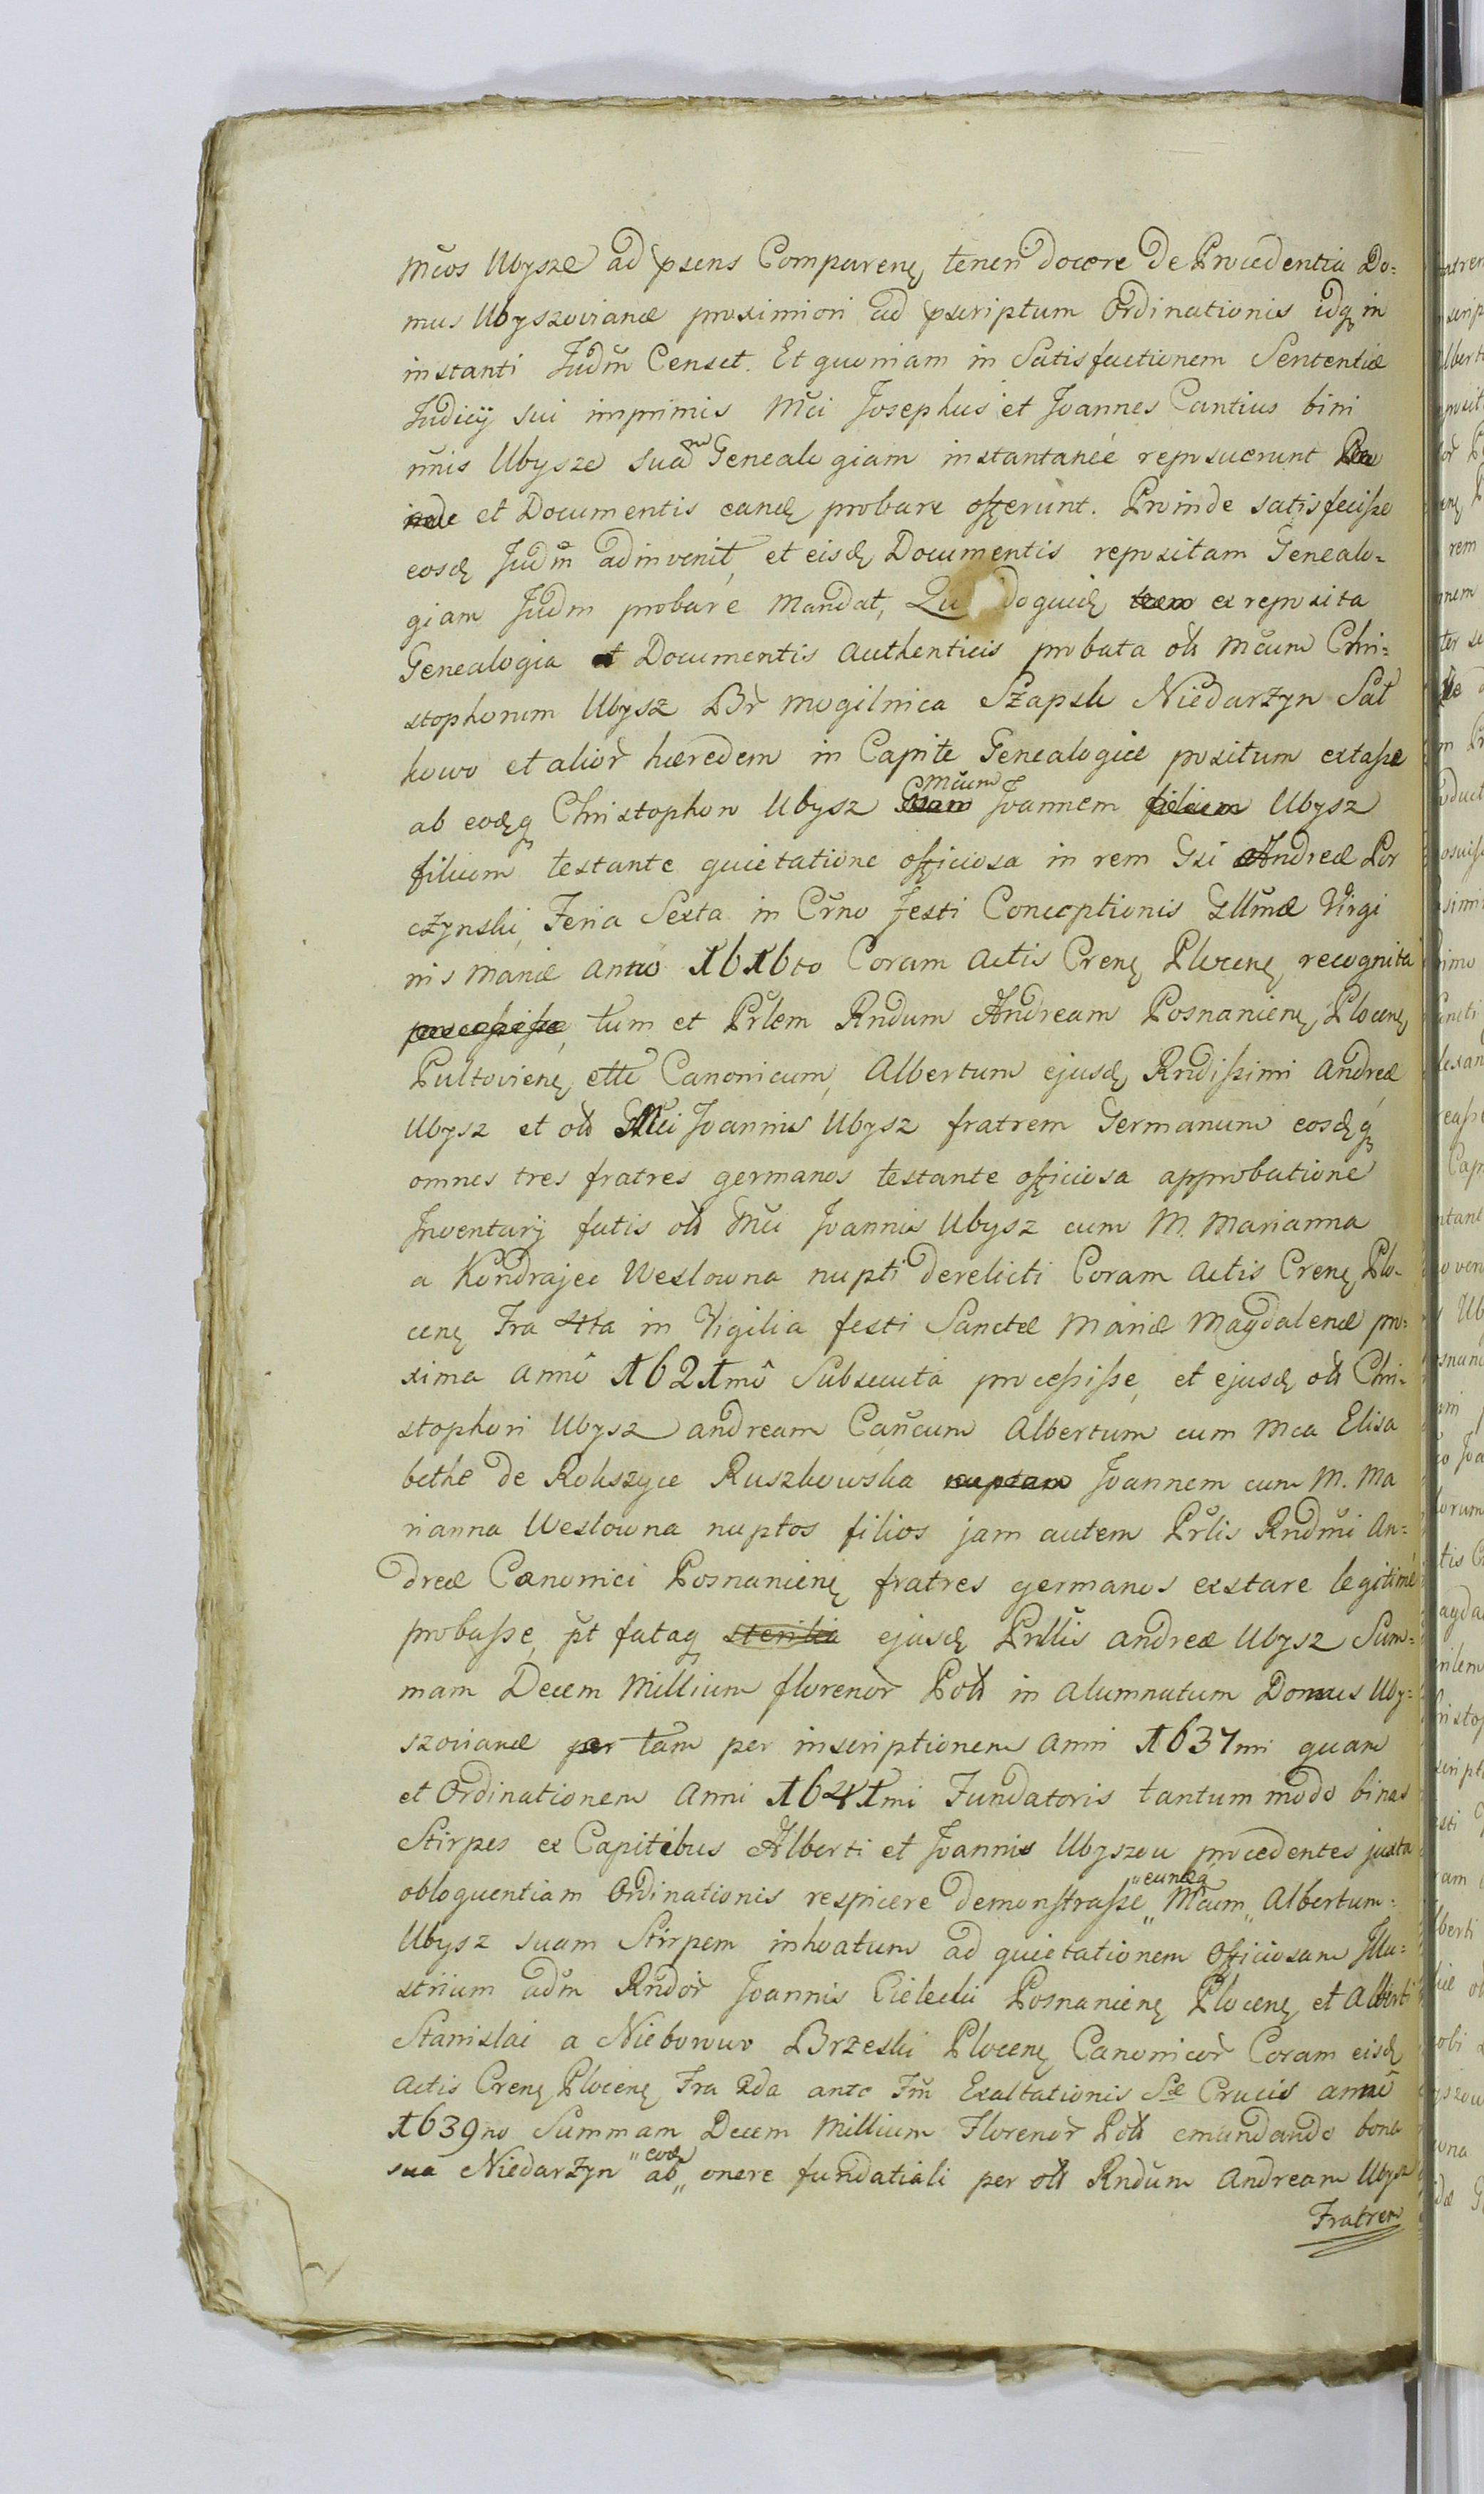 Mc̃os Ubysze ad p̃sens Comparenę teneri docere de Procedentia Do=
mus Ubyszovianæ proximiori ad p̃scriptum Ordinationis idq̨ in
instanti Judm̃ Censet. Et quoniam in Satisfactionem Sententiæ
Judicij sui imprimis Mc̃i Josephus et Joannes Cantius bini
nñis Ubysze suam Genealogiam instantaneé reposuerunt
et Documentis eandę probare offerunt. Proinde satisfecisse
eosdę Judm̃ adinvenit, et eisdę Documentis repositam Genealo=
giam Judm probare Mandat, Qu doquidę ex reposita
Genealogia et Documentis Authenticis probata olł Mc̃um Chri=
stophorum Ubysz Br̃ Mogilnica Szapsk Niedarzyn Sał
kowo et alior̃ hæredem in Capite Genealogiæ positum extasse
ab eodęq̨ Christophoro Ubysz Mc̃um Joannem filium Ubysz
filium testante quietatione officiosa in rem Gsi Andreæ Por
czynski, Feria Sexta in Cr̃no festi Conceptionis Gllmæ Virgi
nis Mariæ anno 1616to Coram Actis Crenę Plocenę recognita
processisse, tum et Pr̃lem Rndum Andream Posnanienę, Plocenę,
Pultovienę, ettc Canonicum, Albertum ejusdę Rndissimi Andreæ
Ubysz et olł Mc̃i Joannis Ubysz fratrem Germanum eosdęq̨
omnes tres fratres germanos testante officiosa approbatione
Inventarij fatis olł Mc̃i Joannis Ubysz cum M. Marianna
a Kondrajec Weslowna nupti derelicti Coram Actis Crenę Plo-
cenę Fra 4ta in Vigilia festi Sanctæ Mariæ Magdalenæ pro=
xima anno 1621mo Subsecuta processisse, et ejusdę olł Chri-
stophori Ubysz Andream Canc̃um Albertum cum Mca Elisa
bethe de Rokszyce Ruszkowska nuptam Joannem cum M. Ma
rianna Weslowna nuptos filios jam autem Pr̃lis Rndmi An=
dreæ Canonici Posnanienę fratres germanos exstare legitimé
probasse, p̃t fataq̨ sterilia ejusdę Prllis Andreæ Ubysz Sum=
mam Decem Millium florenor̃ Polł in Alumnatum Domus Uby=
szovianæ per tam per inscriptionem Anni 1637mi quam
et Ordinationem Anni 1641mi Fundatoris tantum modo binas
Stirpes ex Capitibus Alberti et Joannis Ubyszow procedentes juxta
obloquentiam Ordinationis respicere demonstrasse „eundęq̨ Mc̃um„ Albertum=
Ubysz suam Stirpem inhoatum ad quietationem Officiosam Illu=
strium adm̃ Rñdor̃ Joannis Cielecki Posnanienę Plocenę et Alberti
Stanislai a Nieborowo Brzeski Plocenę Canonicor̃ Coram eisdę
Actis Crenę Plocenę Fra 2da ante Fm̃ Exaltationis Sæ Crucis anno
1639no Summam Decem Millium Florenor̃ Polł emundando bona
sua Niedarzyn „eodę ab„ onere fundatiali per olł Rndum Andream Ubysz
Fratrem